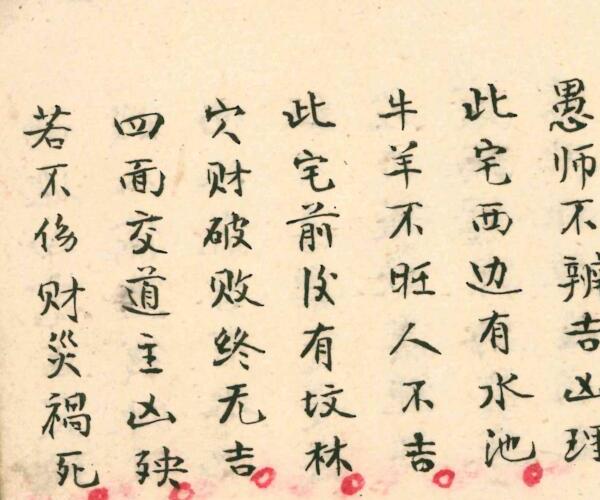 愚师不辨吉凶理
此宅西边有水池
牛羊不旺人不吉
此宅前后有坟林
穴财破败终无吉
四面交道主凶殃
若不伤财災禍死